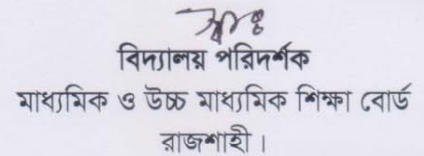 বিদ্যালয় পরিদর্শক
মাধ্যমিক ও উচ্চ মাধ্যমিক শিক্ষা বোর্ড
রাজশাহী ।